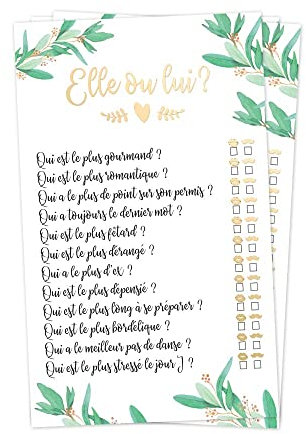 Elle ou lui ?
Qui est le plus gourmand ?
Qui est le plus romantique ?
Qui a le plus de point sur son permis ?
Qui a toujours le dernier mot ?
Qui est le plus fêtard ?
Qui est le plus dérangé ?
Qui a le plus d'ex ?
Qui est le plus dépensié ?
Qui est le plus long à se préparer ?
Qui est le plus bordélique ?
Qui a le meilleur pas de danse ?
Qui est le plus stressé le jour J ?